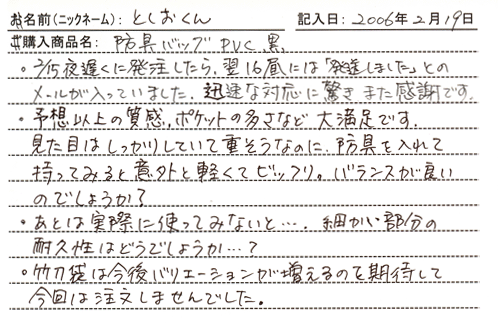 お名前(ニックネーム): としおくん 記入日: 2006年2月19日
ご購入商品名: 防具バッグ PVC 黒
・2/15夜遅くに発注したら、翌16昼には「発送しました」との
メールが入っていました。迅速な対応に驚きまた感謝です。
・予想以上の質感、ポケットの多さなど大満足です。
見た目はしっかりしていて重そうなのに、防具を入れて
持ってみると意外と軽くてビックリ。バランスが良い
のでしょうか?
・あとは実際に使ってみないと…。細かい部分の
耐久性はどうでしょうか…?
・竹刀袋は今後バリエーションが増えるのを期待して
今回は注文しませんでした。